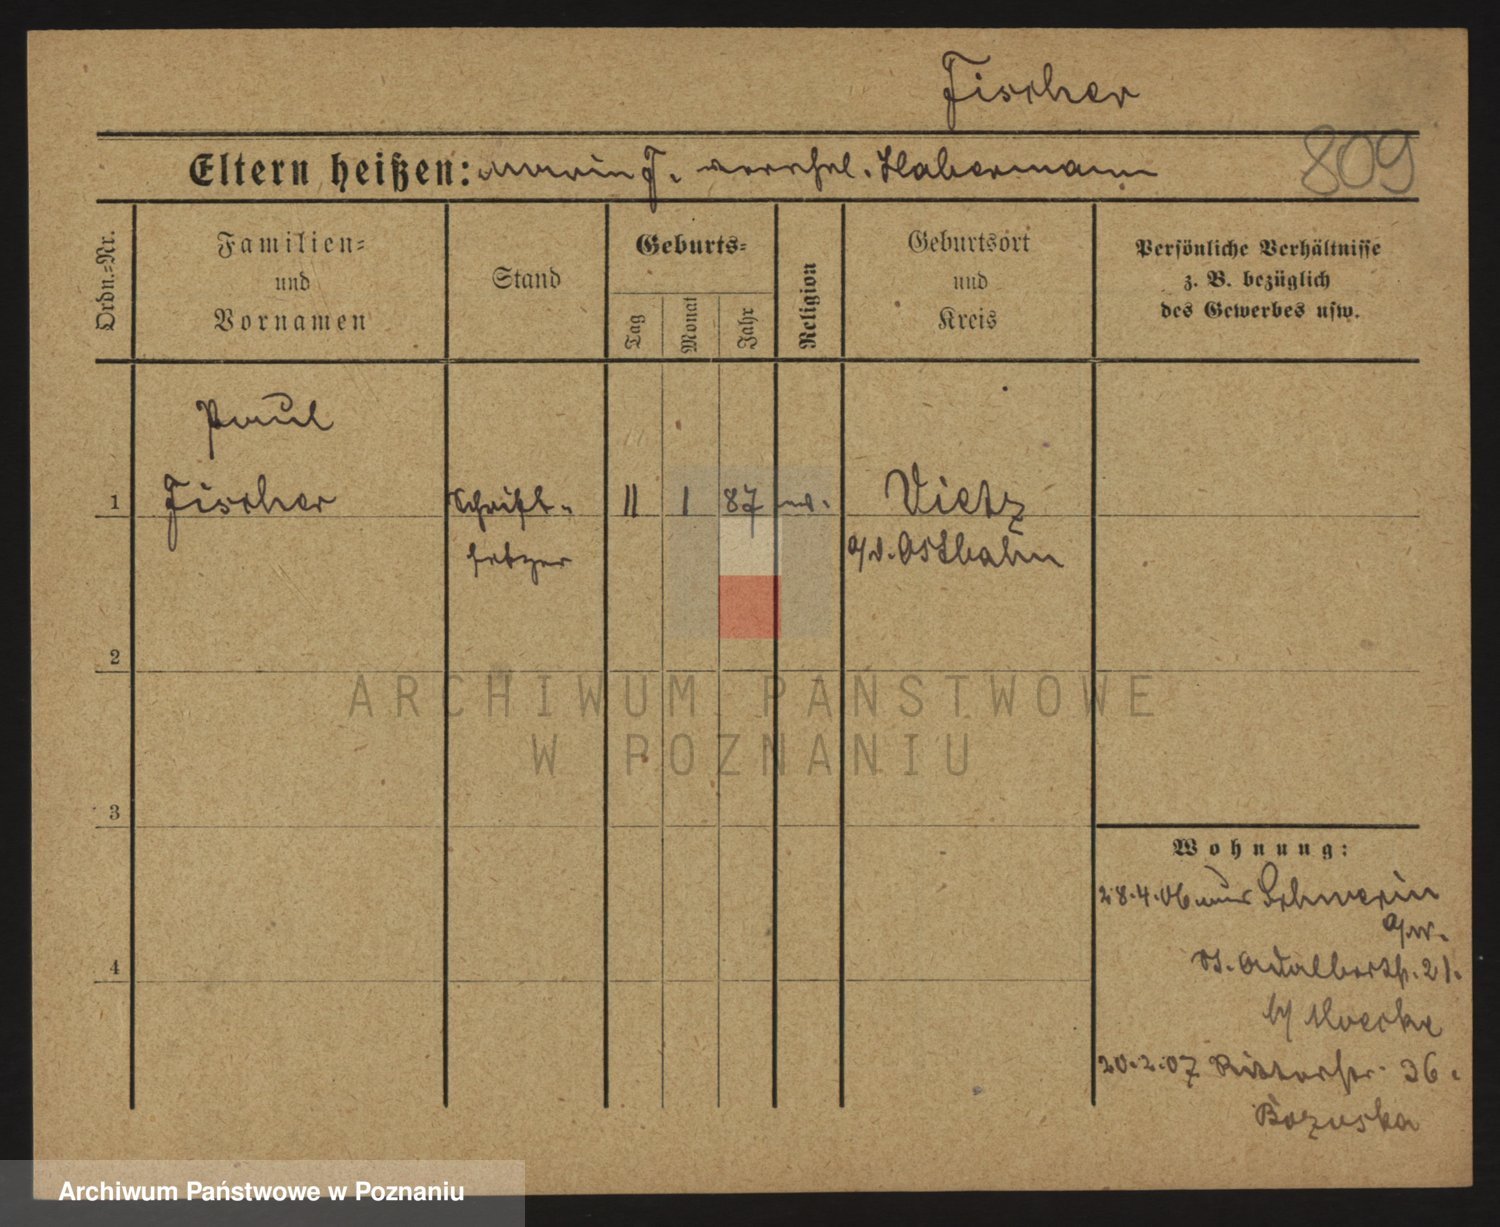 Fischer
809
Eltern heißen: F. Habermann
Ordn.=Nr.
Familien=
und
Vornamen
Stand
Geburts=
Tag
Monat
Jahr
Religion
Geburtsort
und
Kreis
Persönliche Verhältnisse
z. B. bezüglich
des Gewerbes usw.
Paul
1 Fischer Schrift- 11 1 87 Vietz
setzer a/d. Ostbahn
2
ARCHIWUM PAŃSTWOWE
W POZNANIU
3
Wohnung:
28.4.06 aus Schwerin
a/W.
St. Adalbertstr. 21.
4
20.2.07 Ritterstr. 36.
Archiwum Państwowe w Poznaniu